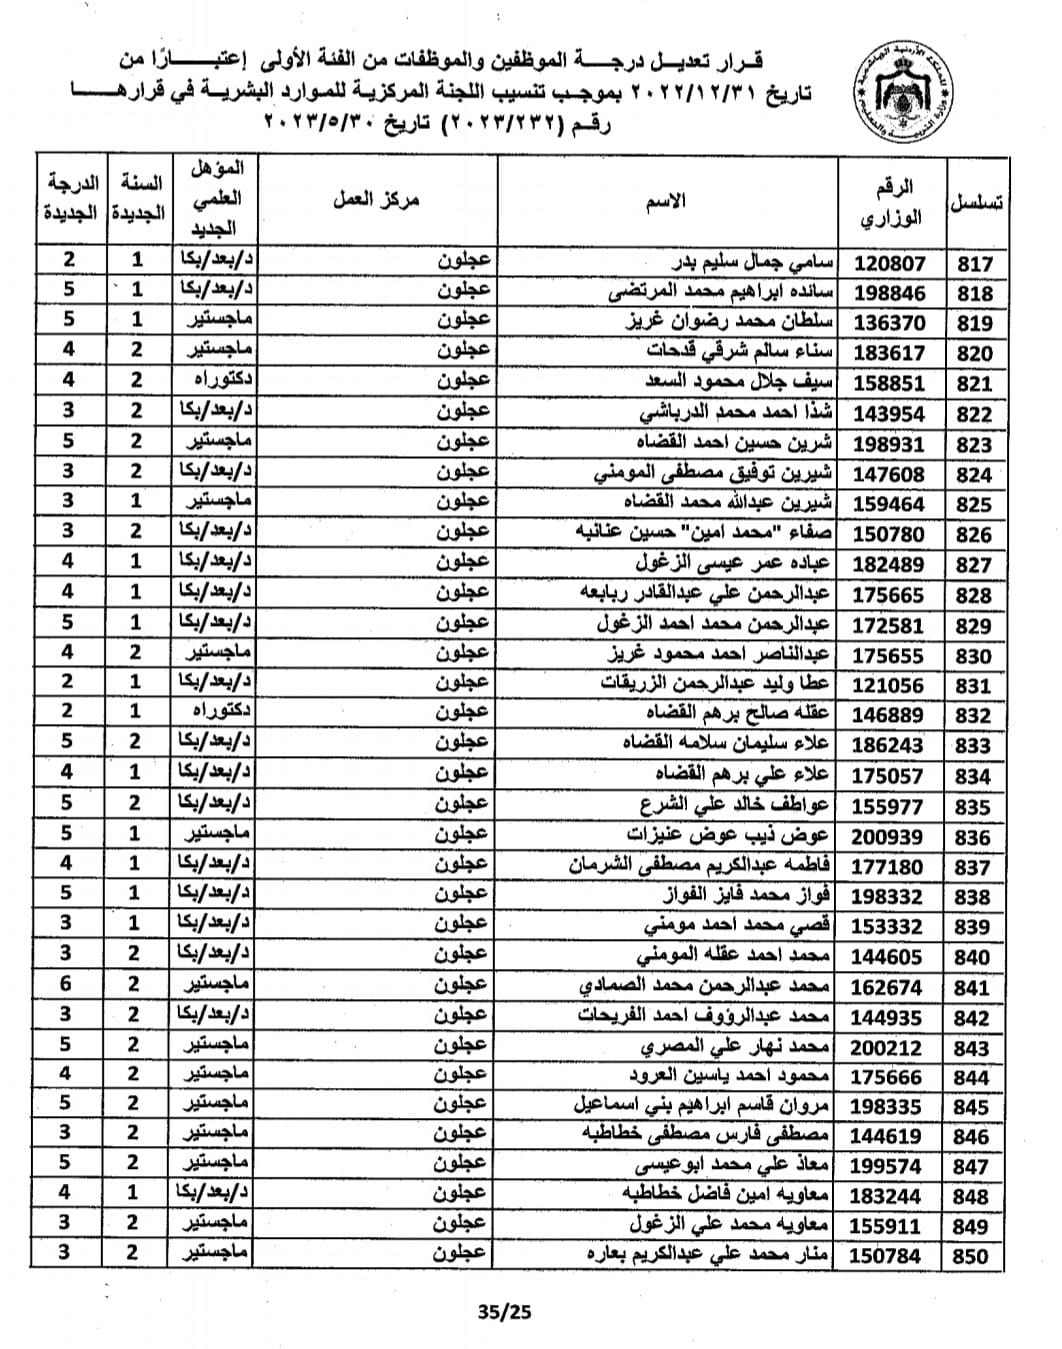 قرار تعديل درجة الموظفين والموظفات من الفئة الأولى إعتبارًا من
تاريخ ٢٠٢٢/١٢/٣١ بموجب تنسيب اللجنة المركزية للموارد البشرية في قرارها
رقم (٢٠٢٣/٢٣٢) تاريخ ٢٠٢٣/٥/٣٠
تسلسل الرقم الوزاري الاسم مركز العمل المؤهل العلمي الجديد السنة الجديدة الدرجة الجديدة
817 120807 سامي جمال سليم بدر عجلون د/بعد/بكا 1 2
818 198846 سانده ابراهيم محمد المرتضى عجلون د/بعد/بكا 1 5
819 136370 سلطان محمد رضوان غريز عجلون ماجستير 1 5
820 183617 سناء سالم شرقي قدحات عجلون ماجستير 2 4
821 158851 سيف جلال محمود السعد عجلون دكتوراه 2 4
822 143954 شذا احمد محمد الدرباشي عجلون د/بعد/بكا 2 3
823 198931 شرين حسين احمد القضاه عجلون ماجستير 2 5
824 147608 شيرين توفيق مصطفى المومني عجلون د/بعد/بكا 2 3
825 159464 شيرين عبدالله محمد القضاه عجلون ماجستير 1 3
826 150780 صفاء "محمد امين" حسين عنانبه عجلون د/بعد/بكا 2 3
827 182489 عباده عمر عيسى الزغول عجلون د/بعد/بكا 1 4
828 175665 عبدالرحمن علي عبدالقادر ربابعه عجلون د/بعد/بكا 1 4
829 172581 عبدالرحمن محمد احمد الزغول عجلون د/بعد/بكا 1 5
830 175655 عبدالناصر احمد محمود غريز عجلون ماجستير 2 4
831 121056 عطا وليد عبدالرحمن الزريقات عجلون د/بعد/بكا 1 2
832 146889 عقله صالح برهم القضاه عجلون دكتوراه 1 2
833 186243 علاء سليمان سلامه القضاه عجلون د/بعد/بكا 2 5
834 175057 علاء علي برهم القضاه عجلون د/بعد/بكا 1 4
835 155977 عواطف خالد علي الشرع عجلون د/بعد/بكا 2 5
836 200939 عوض ذيب عوض عنيزات عجلون ماجستير 1 5
837 177180 فاطمه عبدالكريم مصطفى الشرمان عجلون د/بعد/بكا 1 4
838 198332 فواز محمد فايز الفواز عجلون د/بعد/بكا 1 5
839 153332 قصي محمد احمد مومني عجلون د/بعد/بكا 1 3
840 144605 محمد احمد عقله المومني عجلون د/بعد/بكا 2 3
841 162674 محمد عبدالرحمن محمد الصمادي عجلون ماجستير 2 6
842 144935 محمد عبدالرؤوف احمد الفريحات عجلون د/بعد/بكا 2 3
843 200212 محمد نهار علي المصري عجلون ماجستير 2 5
844 175666 محمود احمد ياسين العرود عجلون ماجستير 2 4
845 198335 مروان قاسم ابراهيم بني اسماعيل عجلون ماجستير 2 5
846 144619 مصطفى فارس مصطفى خطاطبه عجلون ماجستير 2 3
847 199574 معاذ علي محمد ابوعيسى عجلون ماجستير 2 5
848 183244 معاويه امين فاضل خطاطبه عجلون د/بعد/بكا 1 4
849 155911 معاويه محمد علي الزغول عجلون ماجستير 2 3
850 150784 منار محمد علي عبدالكريم بعاره عجلون ماجستير 2 3
35/25